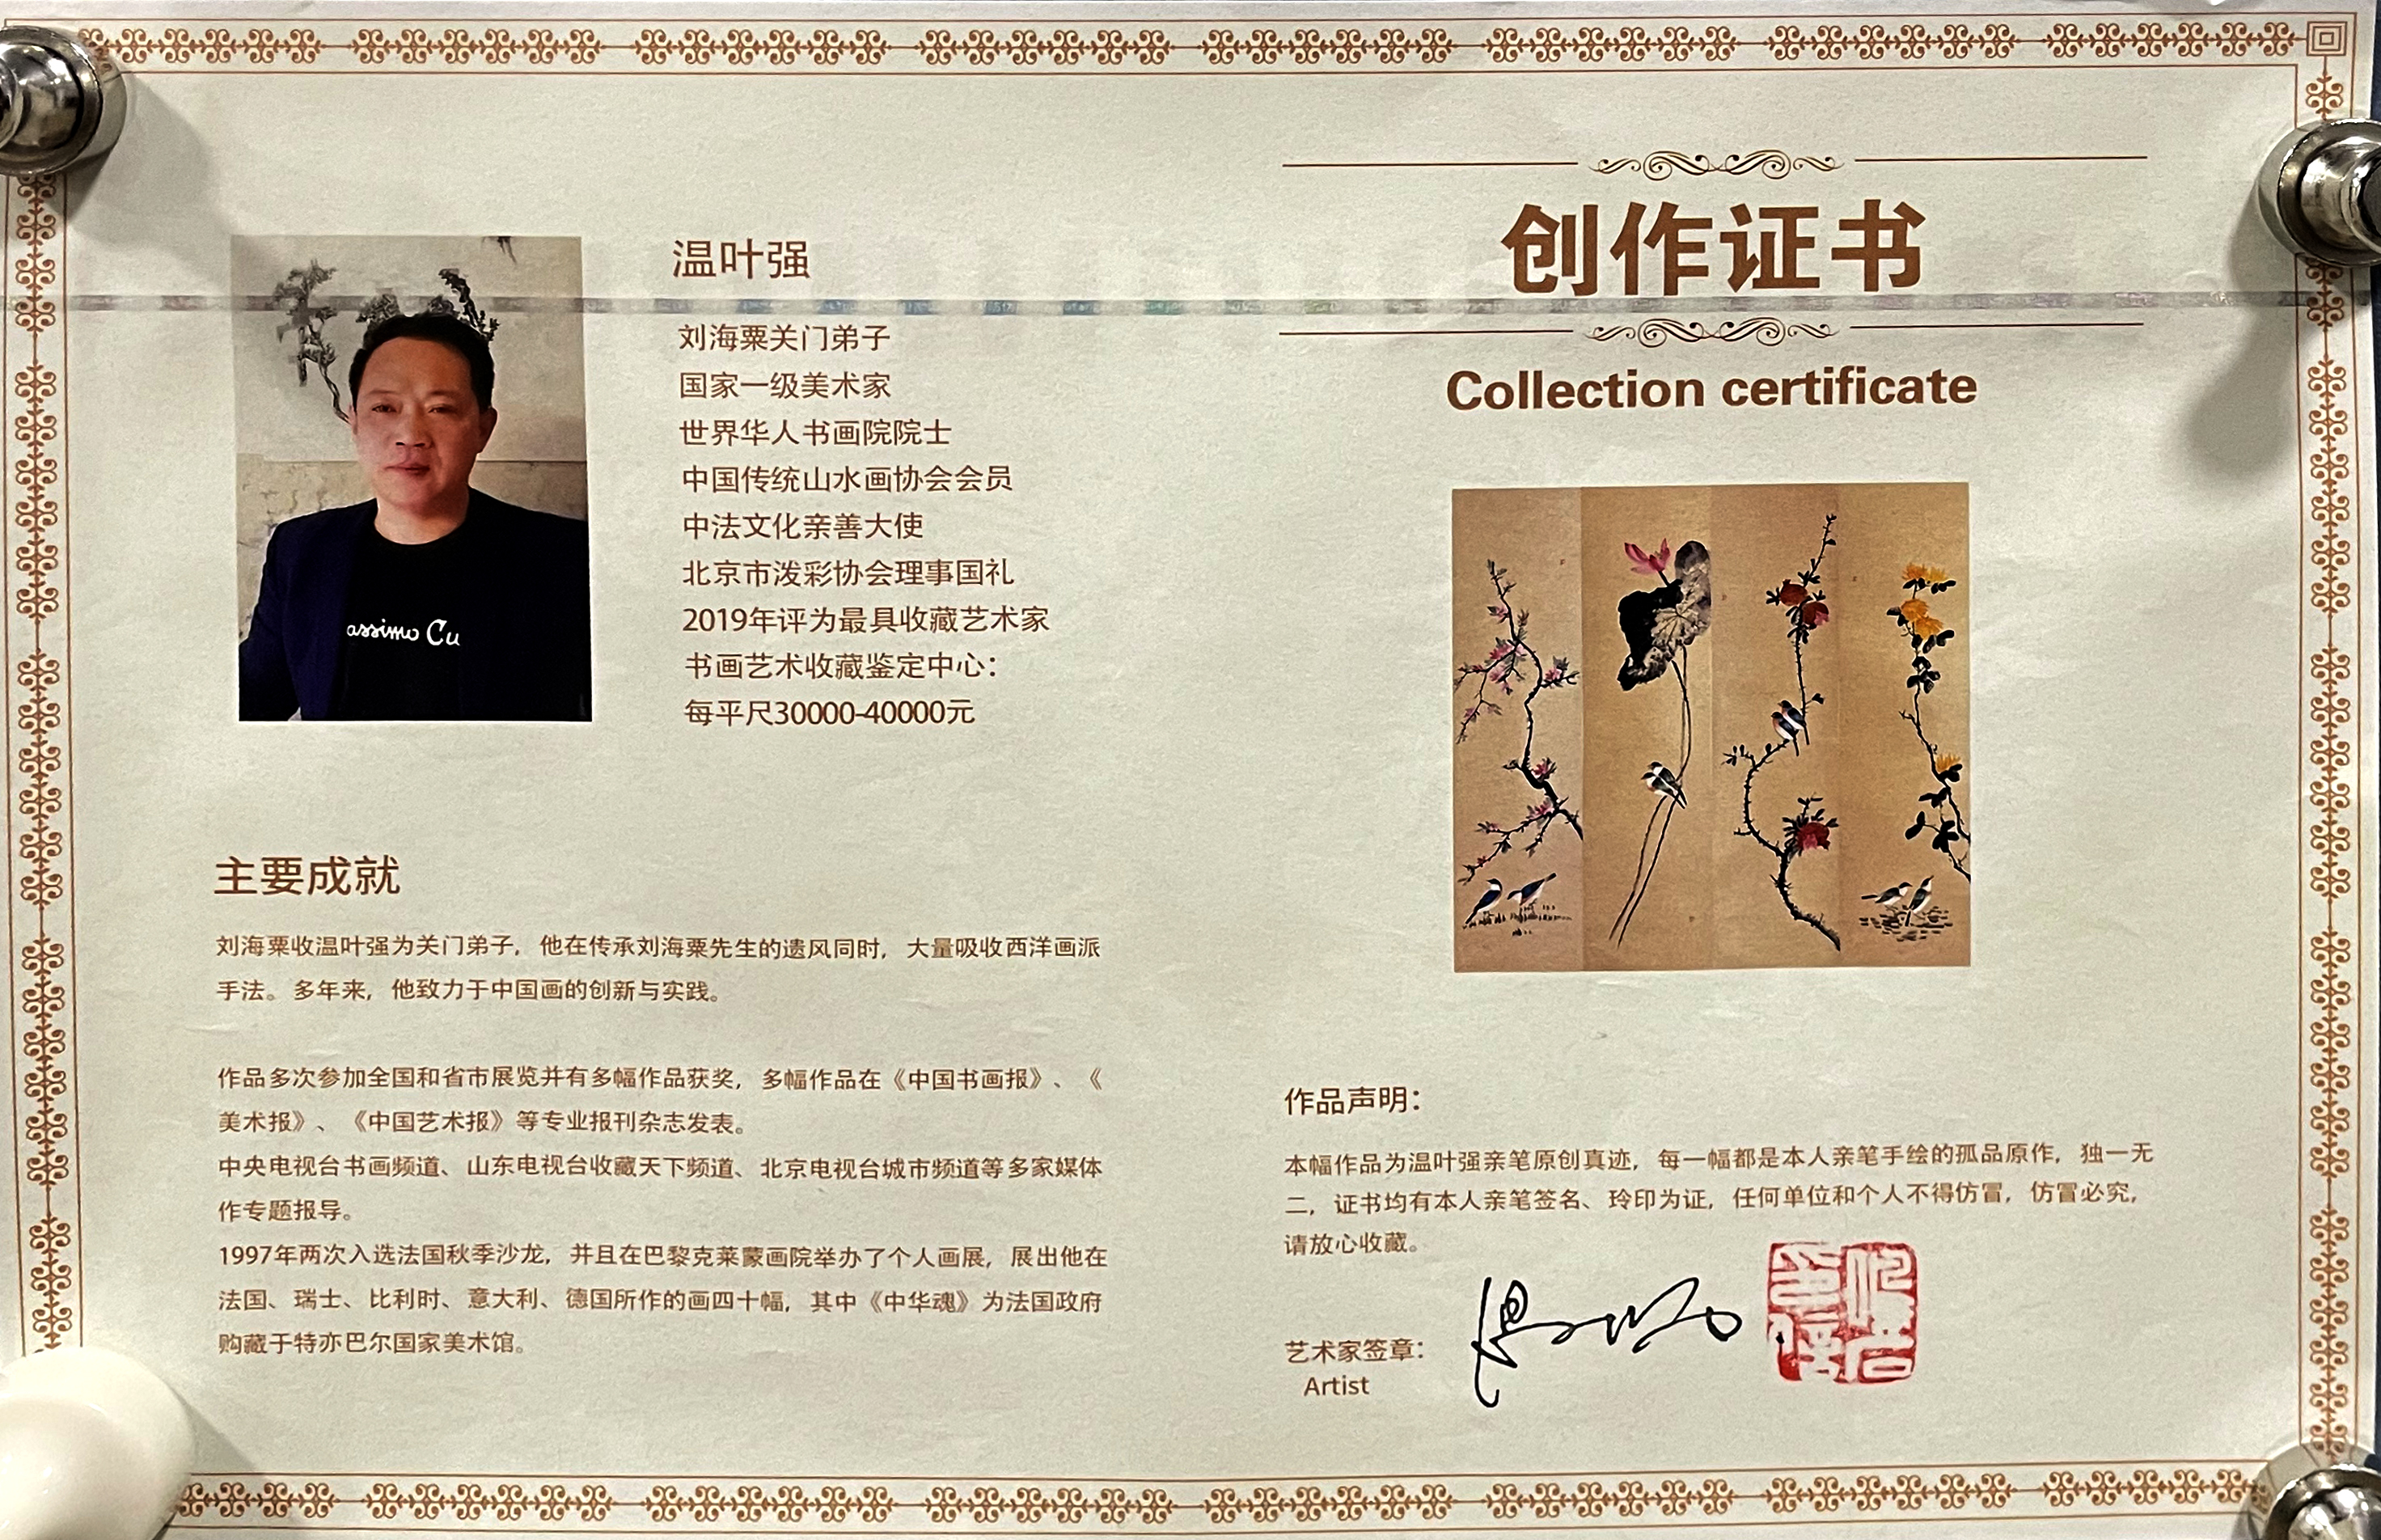 温叶强
刘海粟关门弟子
国家一级美术家
世界华人书画院院士
中国传统山水画协会会员
中法文化亲善大使
北京市泼彩协会理事国礼
2019年评为最具收藏艺术家
书画艺术收藏鉴定中心：
每平尺30000-40000元
assimo Cu
主要成就
刘海粟收温叶强为关门弟子，他在传承刘海粟先生的遗风同时，大量吸收西洋画派
手法。多年来，他致力于中国画的创新与实践。
作品多次参加全国和省市展览并有多幅作品获奖，多幅作品在《中国书画报》、《
美术报》、《中国艺术报》等专业报刊杂志发表。
中央电视台书画频道、山东电视台收藏天下频道、北京电视台城市频道等多家媒体
作专题报导。
1997年两次入选法国秋季沙龙，并且在巴黎克莱蒙画院举办了个人画展，展出他在
法国、瑞士、比利时、意大利、德国所作的画四十幅，其中《中华魂》为法国政府
购藏于特亦巴尔国家美术馆。
创作证书
Collection certificate
作品声明：
本幅作品为温叶强亲笔原创真迹，每一幅都是本人亲笔手绘的孤品原作，独一无
二，证书均有本人亲笔签名、玲印为证，任何单位和个人不得仿冒，仿冒必究，
请放心收藏。
艺术家签章：
Artist